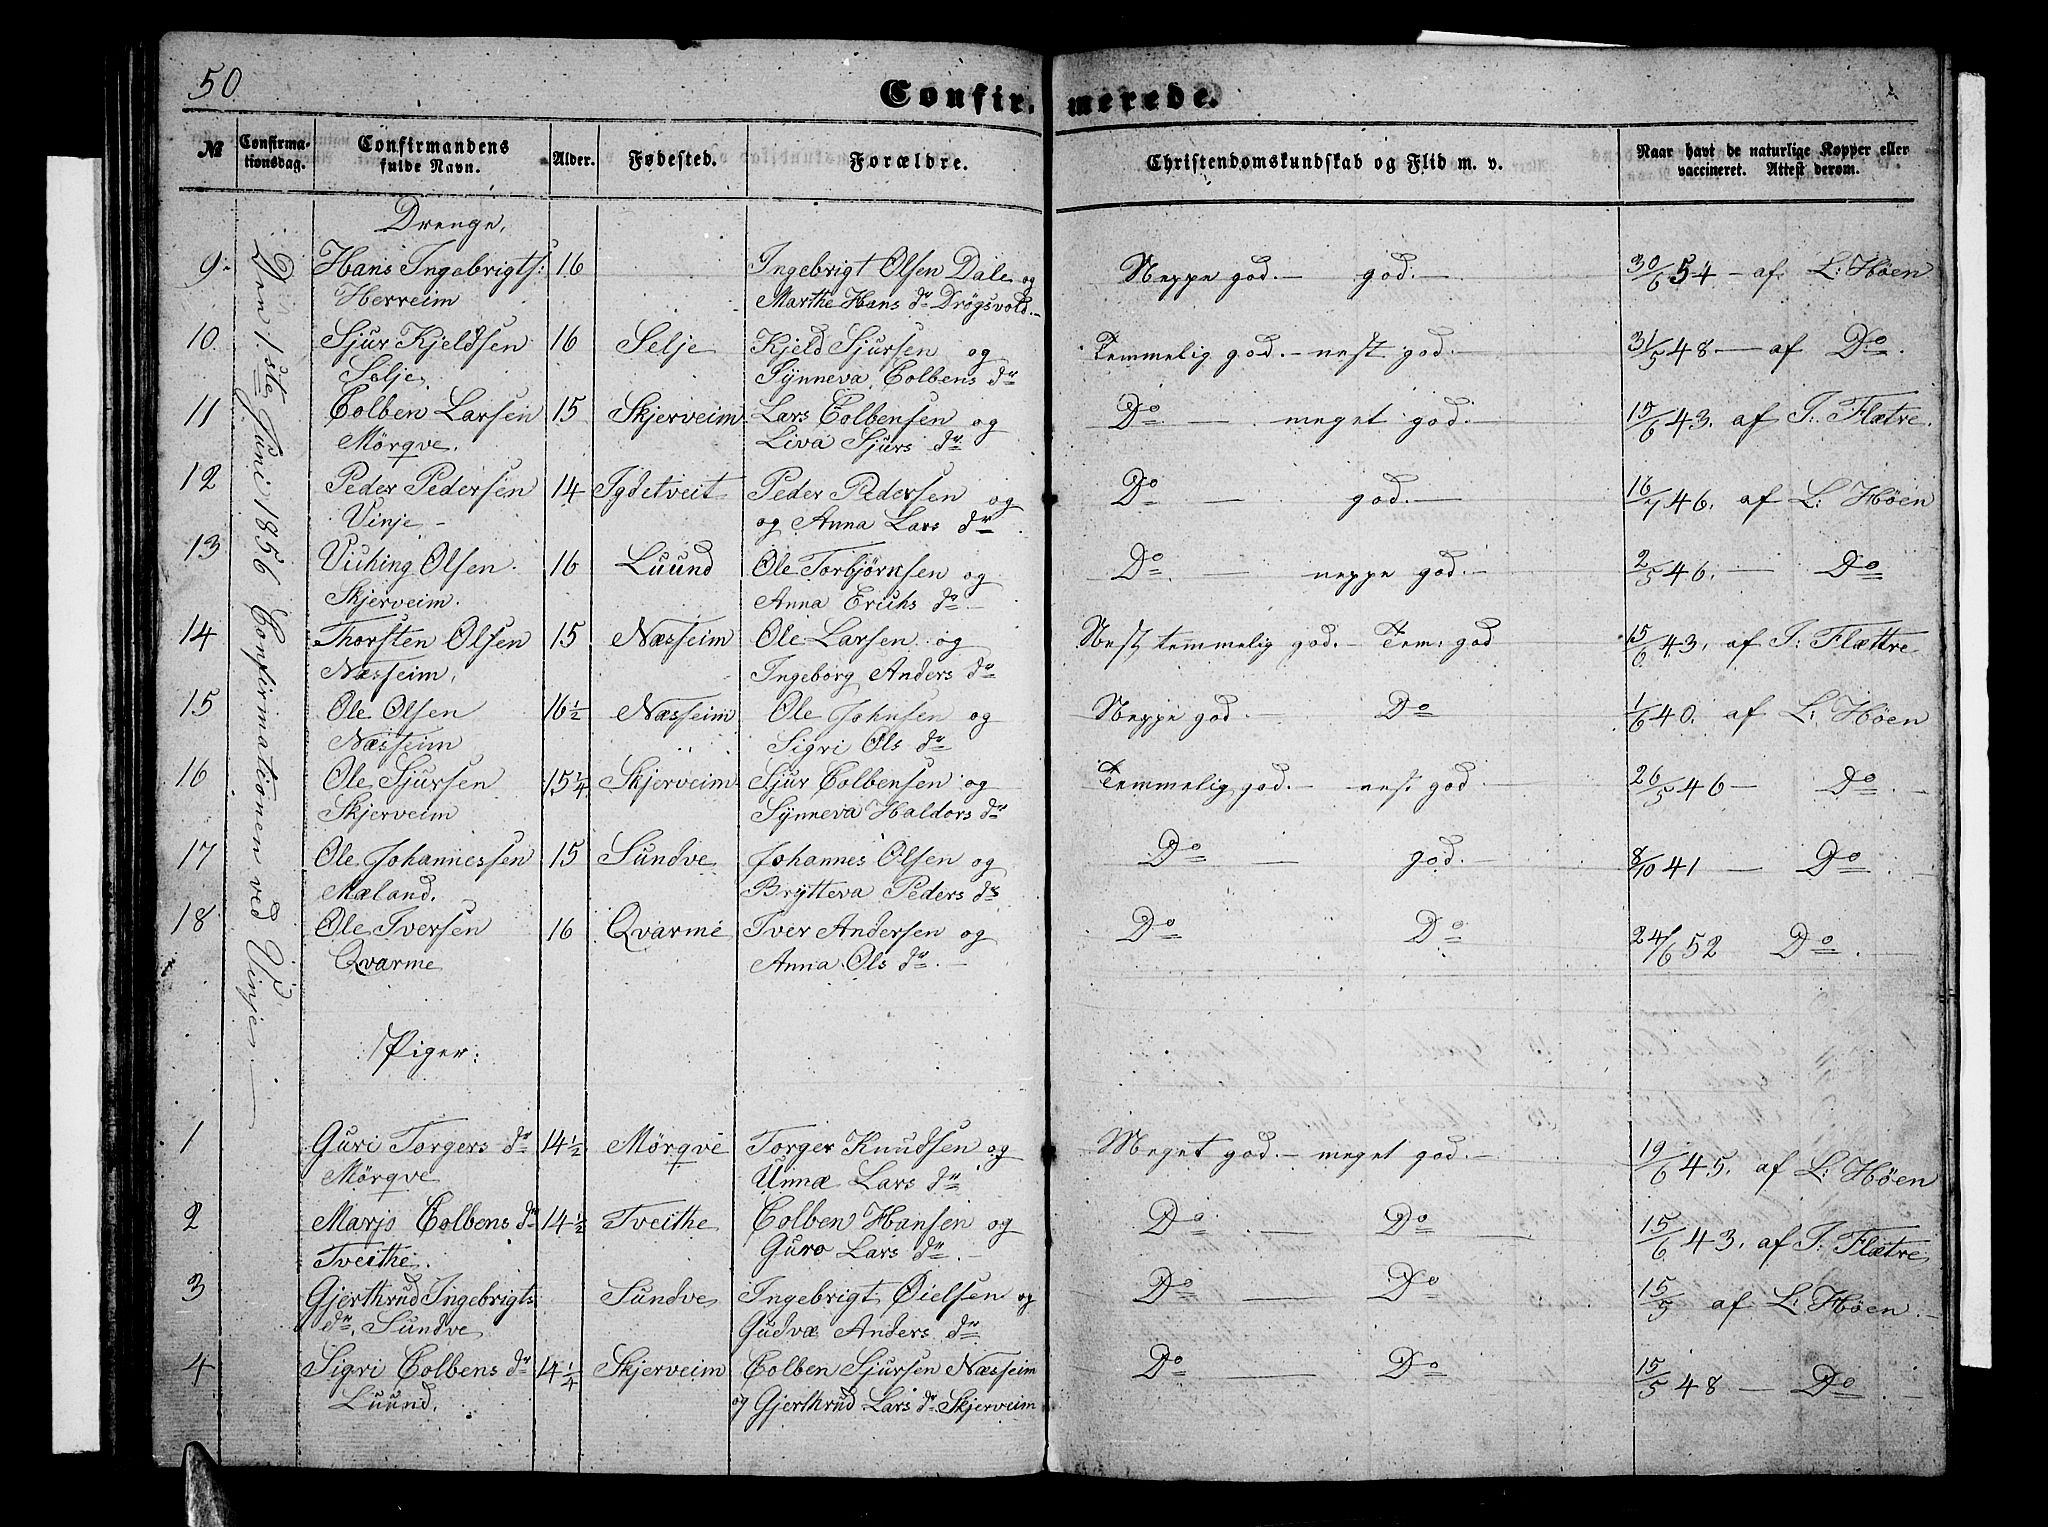 50
Confirmerede.
№ Confirmationsdag. Confirmandens fulde Navn. Alder. Fødested. Forældre. Christendomskundskab og Flid m. v. Naar havt de naturlige Kopper eller vaccineret. Attest derom.
Den 1ste Juni 1856 Confirmationen ved Vinje.
Drenge.
9 Hans Ingebrigts: 16 Ingebrigt Olsen Dale og Neppe god. — god. — 30/6 54 — af L: Høen
Herreim Marthe Hans dr Drøgsvold.
10 Sjur Kjeldsen 16 Selje Kjeld Sjursen og Temmelig god. — nest god. — 31/5 48 — af Do
Selje. Synneva Colbens dr
11 Colben Larsen 15 Skjerveim Lars Colbensen og Do — meget god. — 15/6 43. af I: Flætre.
Mörqve. Liva Sjurs dr
12 Peder Pedersen 14 Igdetveit Peder Pedersen og Do — god. — 16/7 46. af L: Høen
Vinje — og Anna Lars dr
13 Viching Olsen 16 Luund Ole Torbjørnsen og Do — neppe god. — 2/5 46. — Do
Skjerveim. Anna Erichs dr —
14 Thorsten Olsen 15 Næsseim Ole Larsen og Nest temmelig god. — Tem: god 15/6 43. af I: Flættre
Næsseim. Ingeborg Anders dr
15 Ole Olsen 16 1/2 Næsseim Ole Johnsen og Neppe god. — Do 1/6 40. af L: Høen
Næsseim Sigri Ols dr
16 Ole Sjursen 15 1/4 Skjerveim Sjur Colbensen og Temmelig god. — nest god — 26/5 46 — Do
Skjerveim Synneva Haldors dr
17 Ole Johannessen 15 Sundve Johannes Olsen og Do — god. — 8/10 41 — Do
Mæland. Brytteva Peders dr
18 Ole Iversen 16 Qvarme Iver Andersen og Do Do 24/6 52 Do
Qvarme Anna Ols dr —
Piger:
1 Guri Torgers dr 14 1/2 Mörqve Torger Knudsen og Meget god. — meget god. — 19/6 45. af L: Høen
Mörqve Unnæ Lars dr
2 Marjo Colbens dr 14 1/2 Tveithe Colben Hansen og Do — Do — 15/6 43. af I: Flætre
Tveithe. Guro Lars dr —
3 Gjerthrud Ingebrigts Sundve Ingebrigt Øielsen og Do — Do 15/5 af L: Høen
dr. Sundve Gudvæ Anders dr
4 Sigri Colbens dr 14 1/4 Skjerveim Colben Sjursen Næsseim Do — Do 15/5 48 — Do —
Luund. og Gjerthrud Lars dr Skjerveim